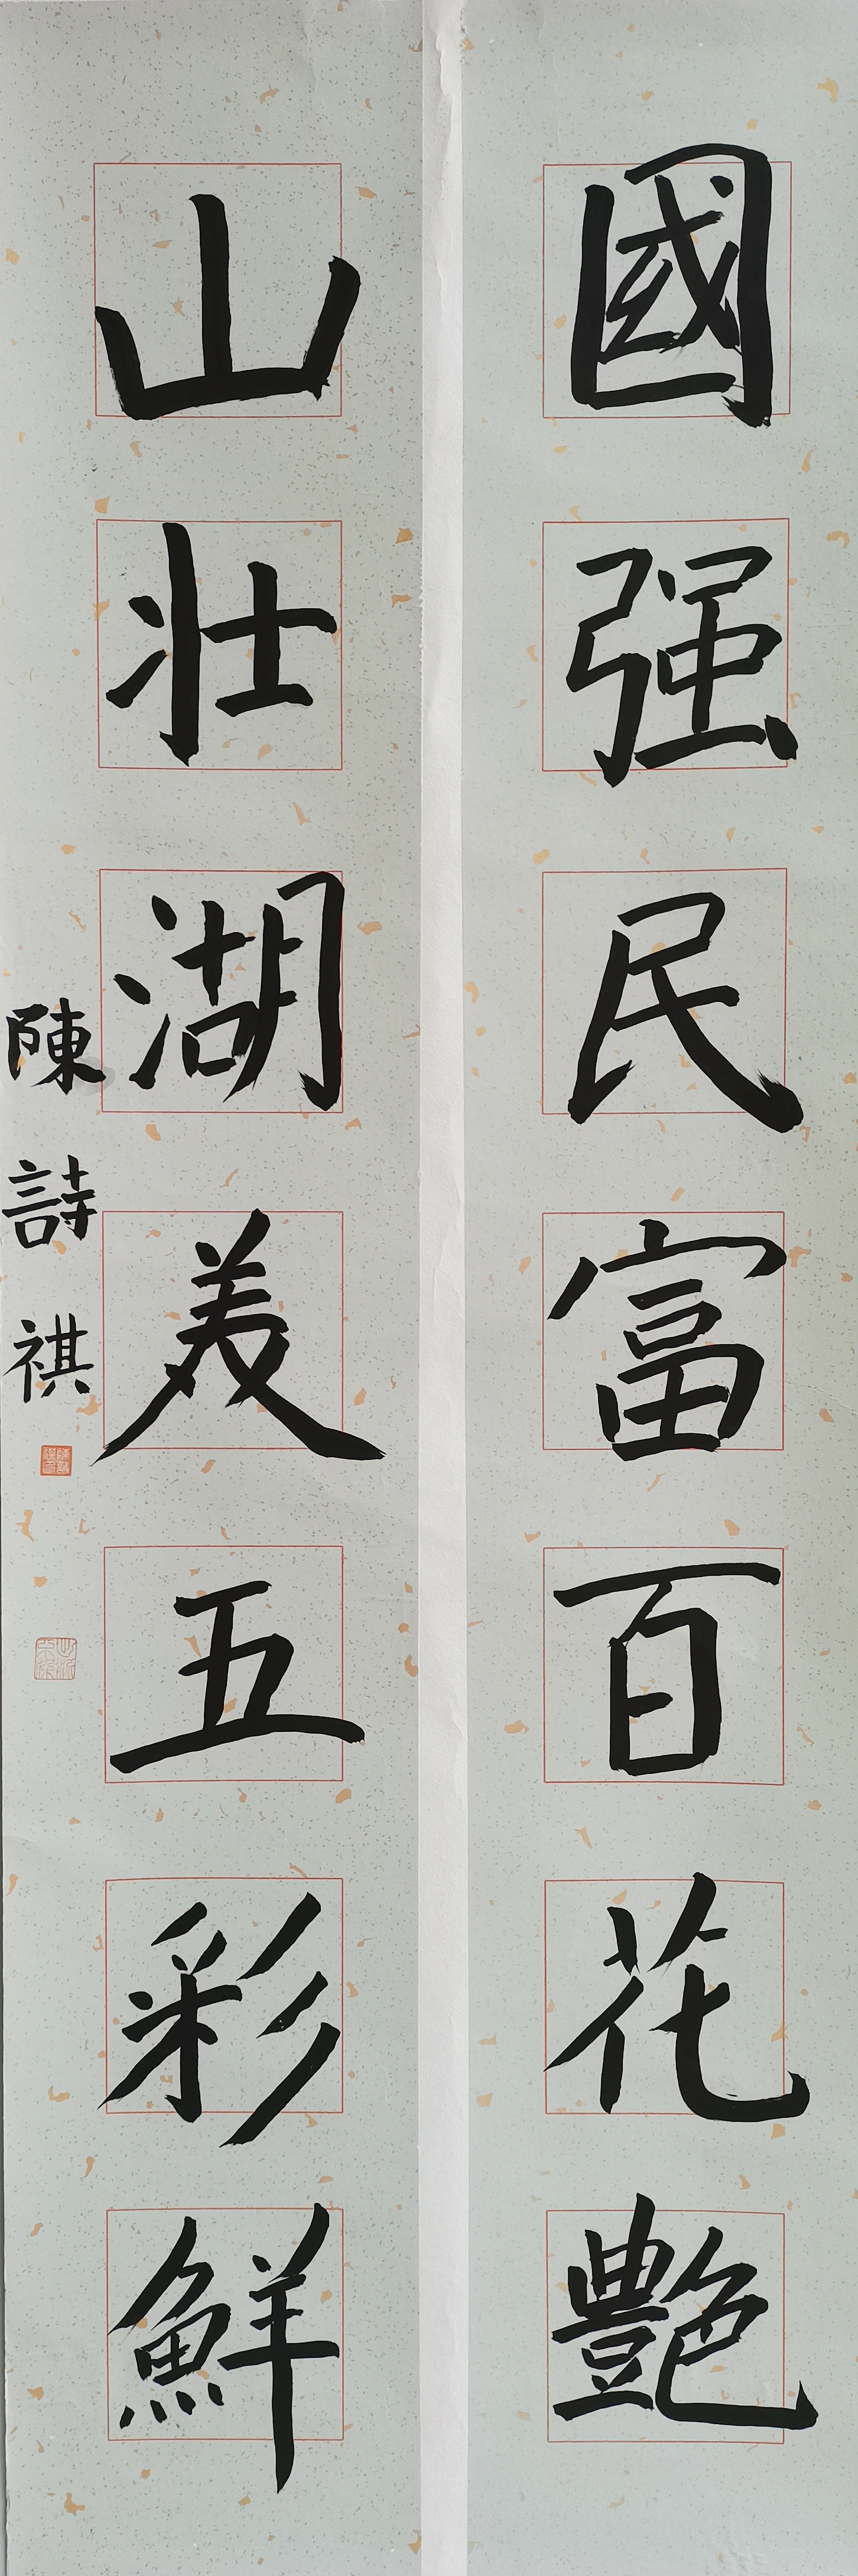 國强民富百花艷
山壮湖美五彩鮮
陳詩祺